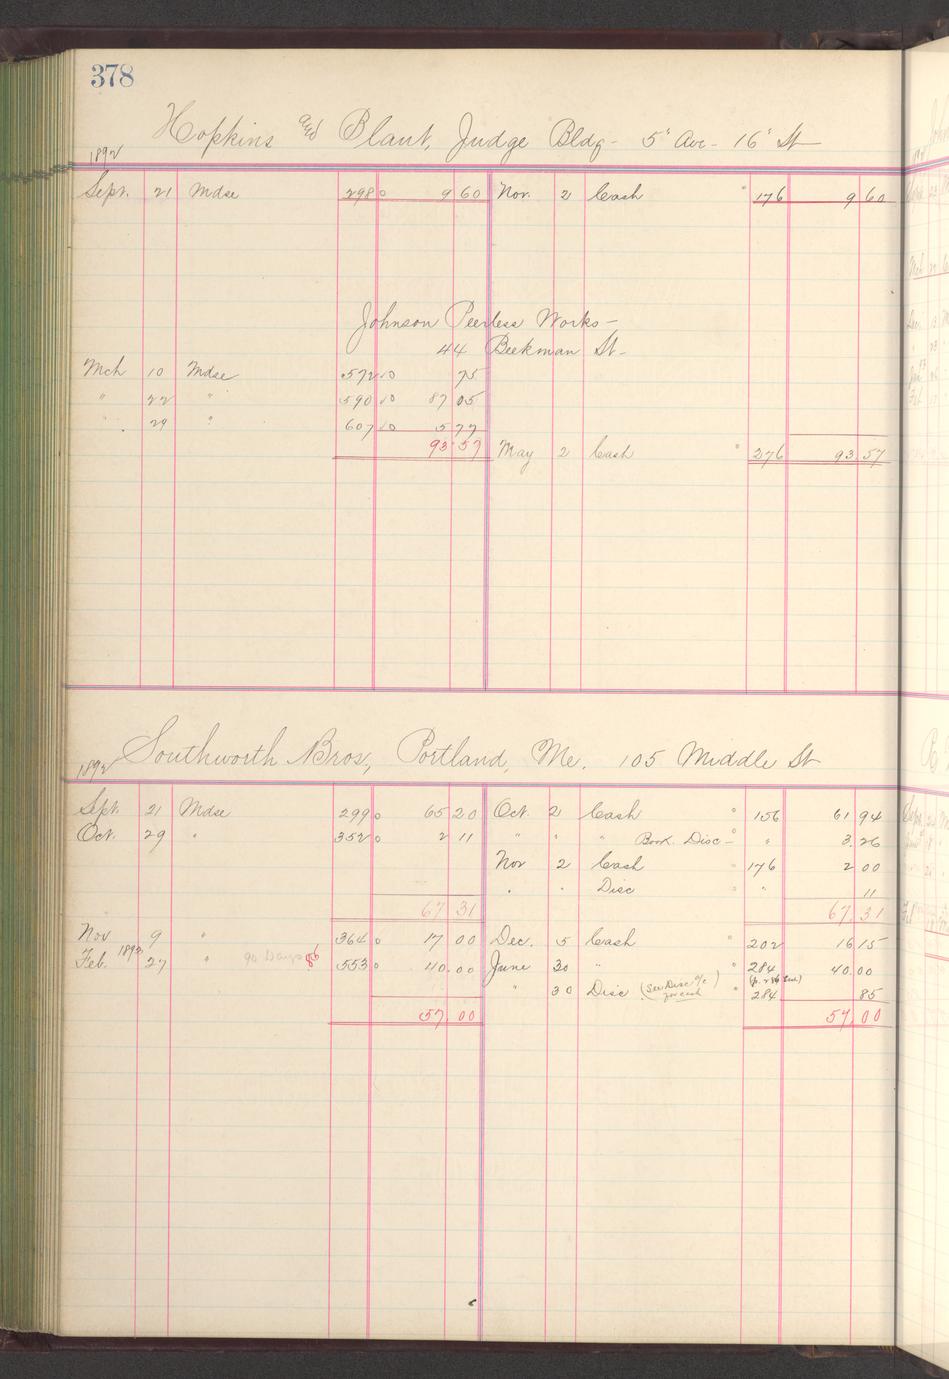 378
Hopkins and Blant, Judge Bldg - 5" Ave - 16" St
1892
Sept. 21 Mdse 298 0 9 60 Nov. 2 Cash " 176 9 60
Johnson Peerless Works -
44 Beekman St -
Mch 10 Mdse 572 10 75
" 22 " 590 10 87 05
" 29 " 607 10 5 77
93 57 May 2 Cash " 276 93.57
Southworth Bros, Portland, Me. 105 Middle St
1892
Sept. 21 Mdse 299 0 65 20 Oct. 2 Cash " 156 61 94
Oct. 29 " 352 0 2 11 " " " Book Disc - " " 3.26
Nov 2 Cash 176 2 00
" " Disc " " 11
67 31 67.31
Nov 9 " 364 0 17 00 Dec. 5 Cash " 202 16 15
Feb. 1893 27 " 90 Days 553 0 40.00 June 30 " " 284 40.00
" 30 Disc (See Disc a/c for cash) " 284 85
57 00 57.00